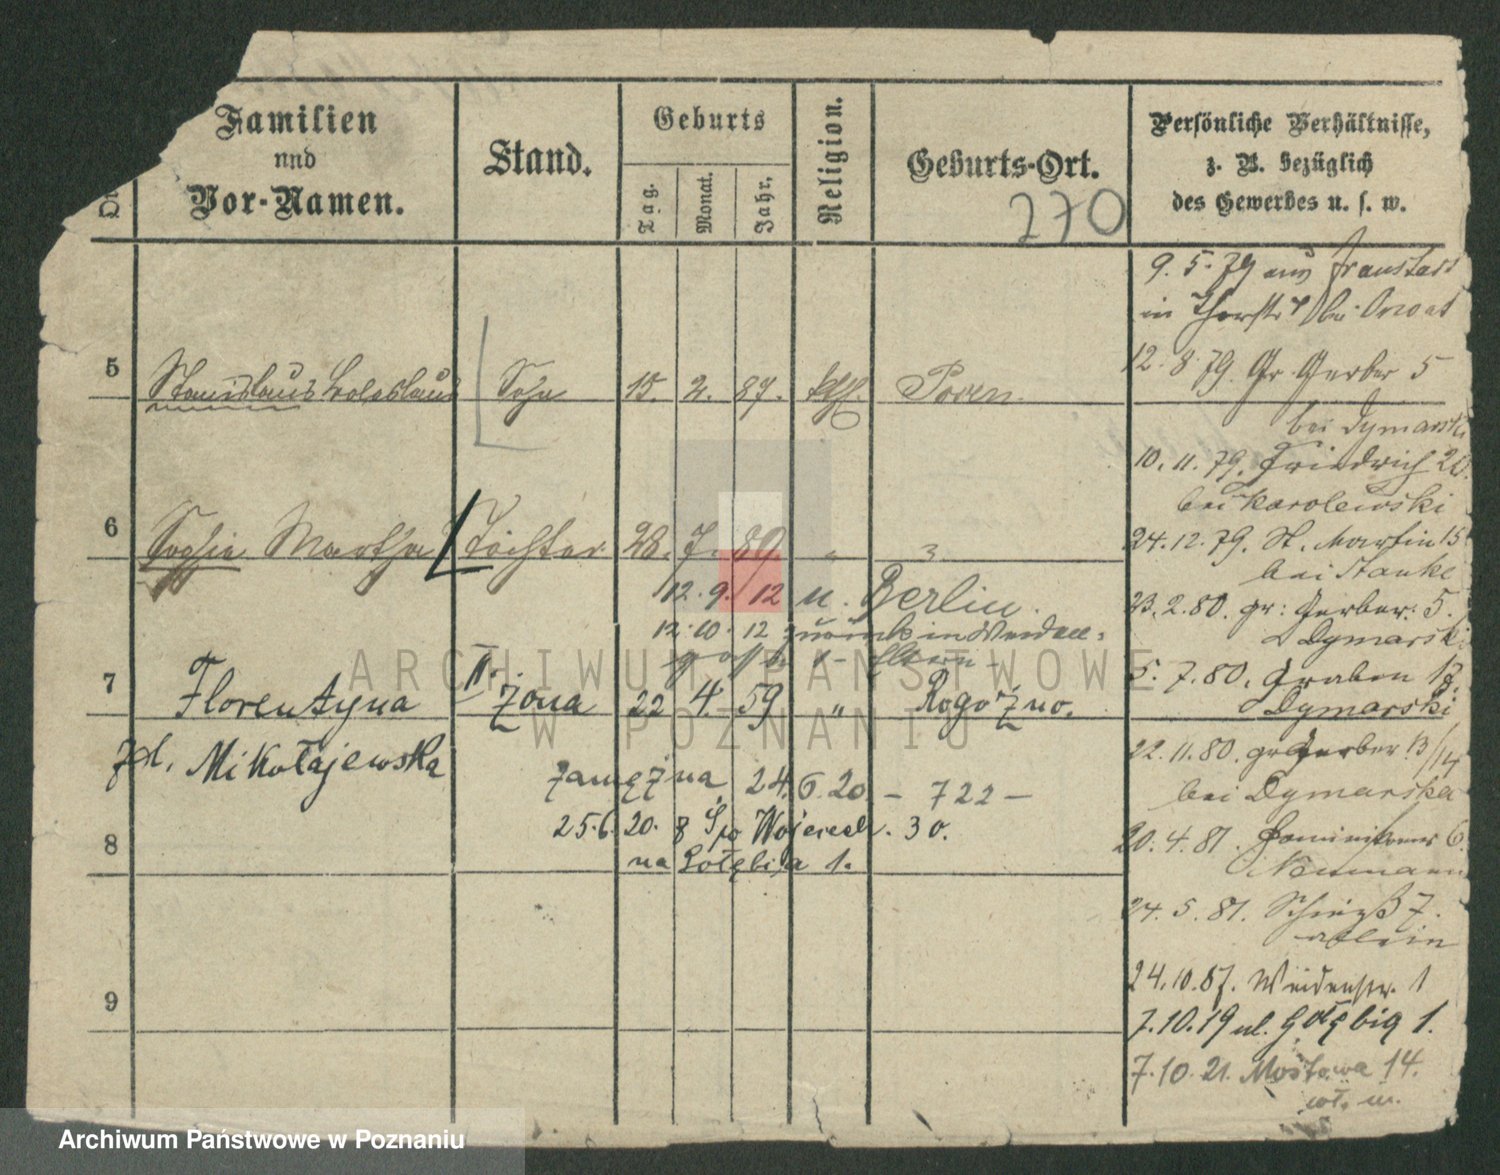 Familien
und
Vor-Namen.
Stand.
Geburts
Tag.
Monat.
Jahr.
Religion.
Geburts-Ort.
270
Persönliche Verhältnisse,
z. B. bezüglich
des Gewerbes u. s. w.
9. 5. 79 aus Fraustadt
in
12. 8. 79. Gr. Gerber 5
bei Dymarski
10. 11. 79. Friedrich 20.
bei Karolewski
24. 12. 79. St. Martin 15
bei Stanke
23. 2. 80. gr: Gerber: 5.
Dymarski
5. 7. 80. Graben 13.
Dymarski
22. 11. 80. gr Gerber 13/14
bei Dymarska
20. 4. 81. 6.
Neumann
24. 5. 81. Schieß 7.
allein
24. 10. 87. Weidenstr. 1
7. 10. 19 ul. Gołębia 1.
7. 10. 21. Mostowa 14.
wł. m.
5 Stanislaus Boleslaus Sohn 15. 2. 87. kth. Posen
6 Sophie Martha Tochter 28. 7. 89 " "
12. 9. 12 n. Berlin.
12. 10. 12 zurück in Weiden=
Eltern
7 Florentyna II. Żona 22 4. 59 " Rogoźno.
zd. Mikołajewska
Zamężna 24. 6. 20. - 722 -
25. 6. 20. 8 Św Wojciech. 30.
8 na Gołębia 1.
9
ARCHIWUM PAŃSTWOWE
W POZNANIU
Archiwum Państwowe w Poznaniu